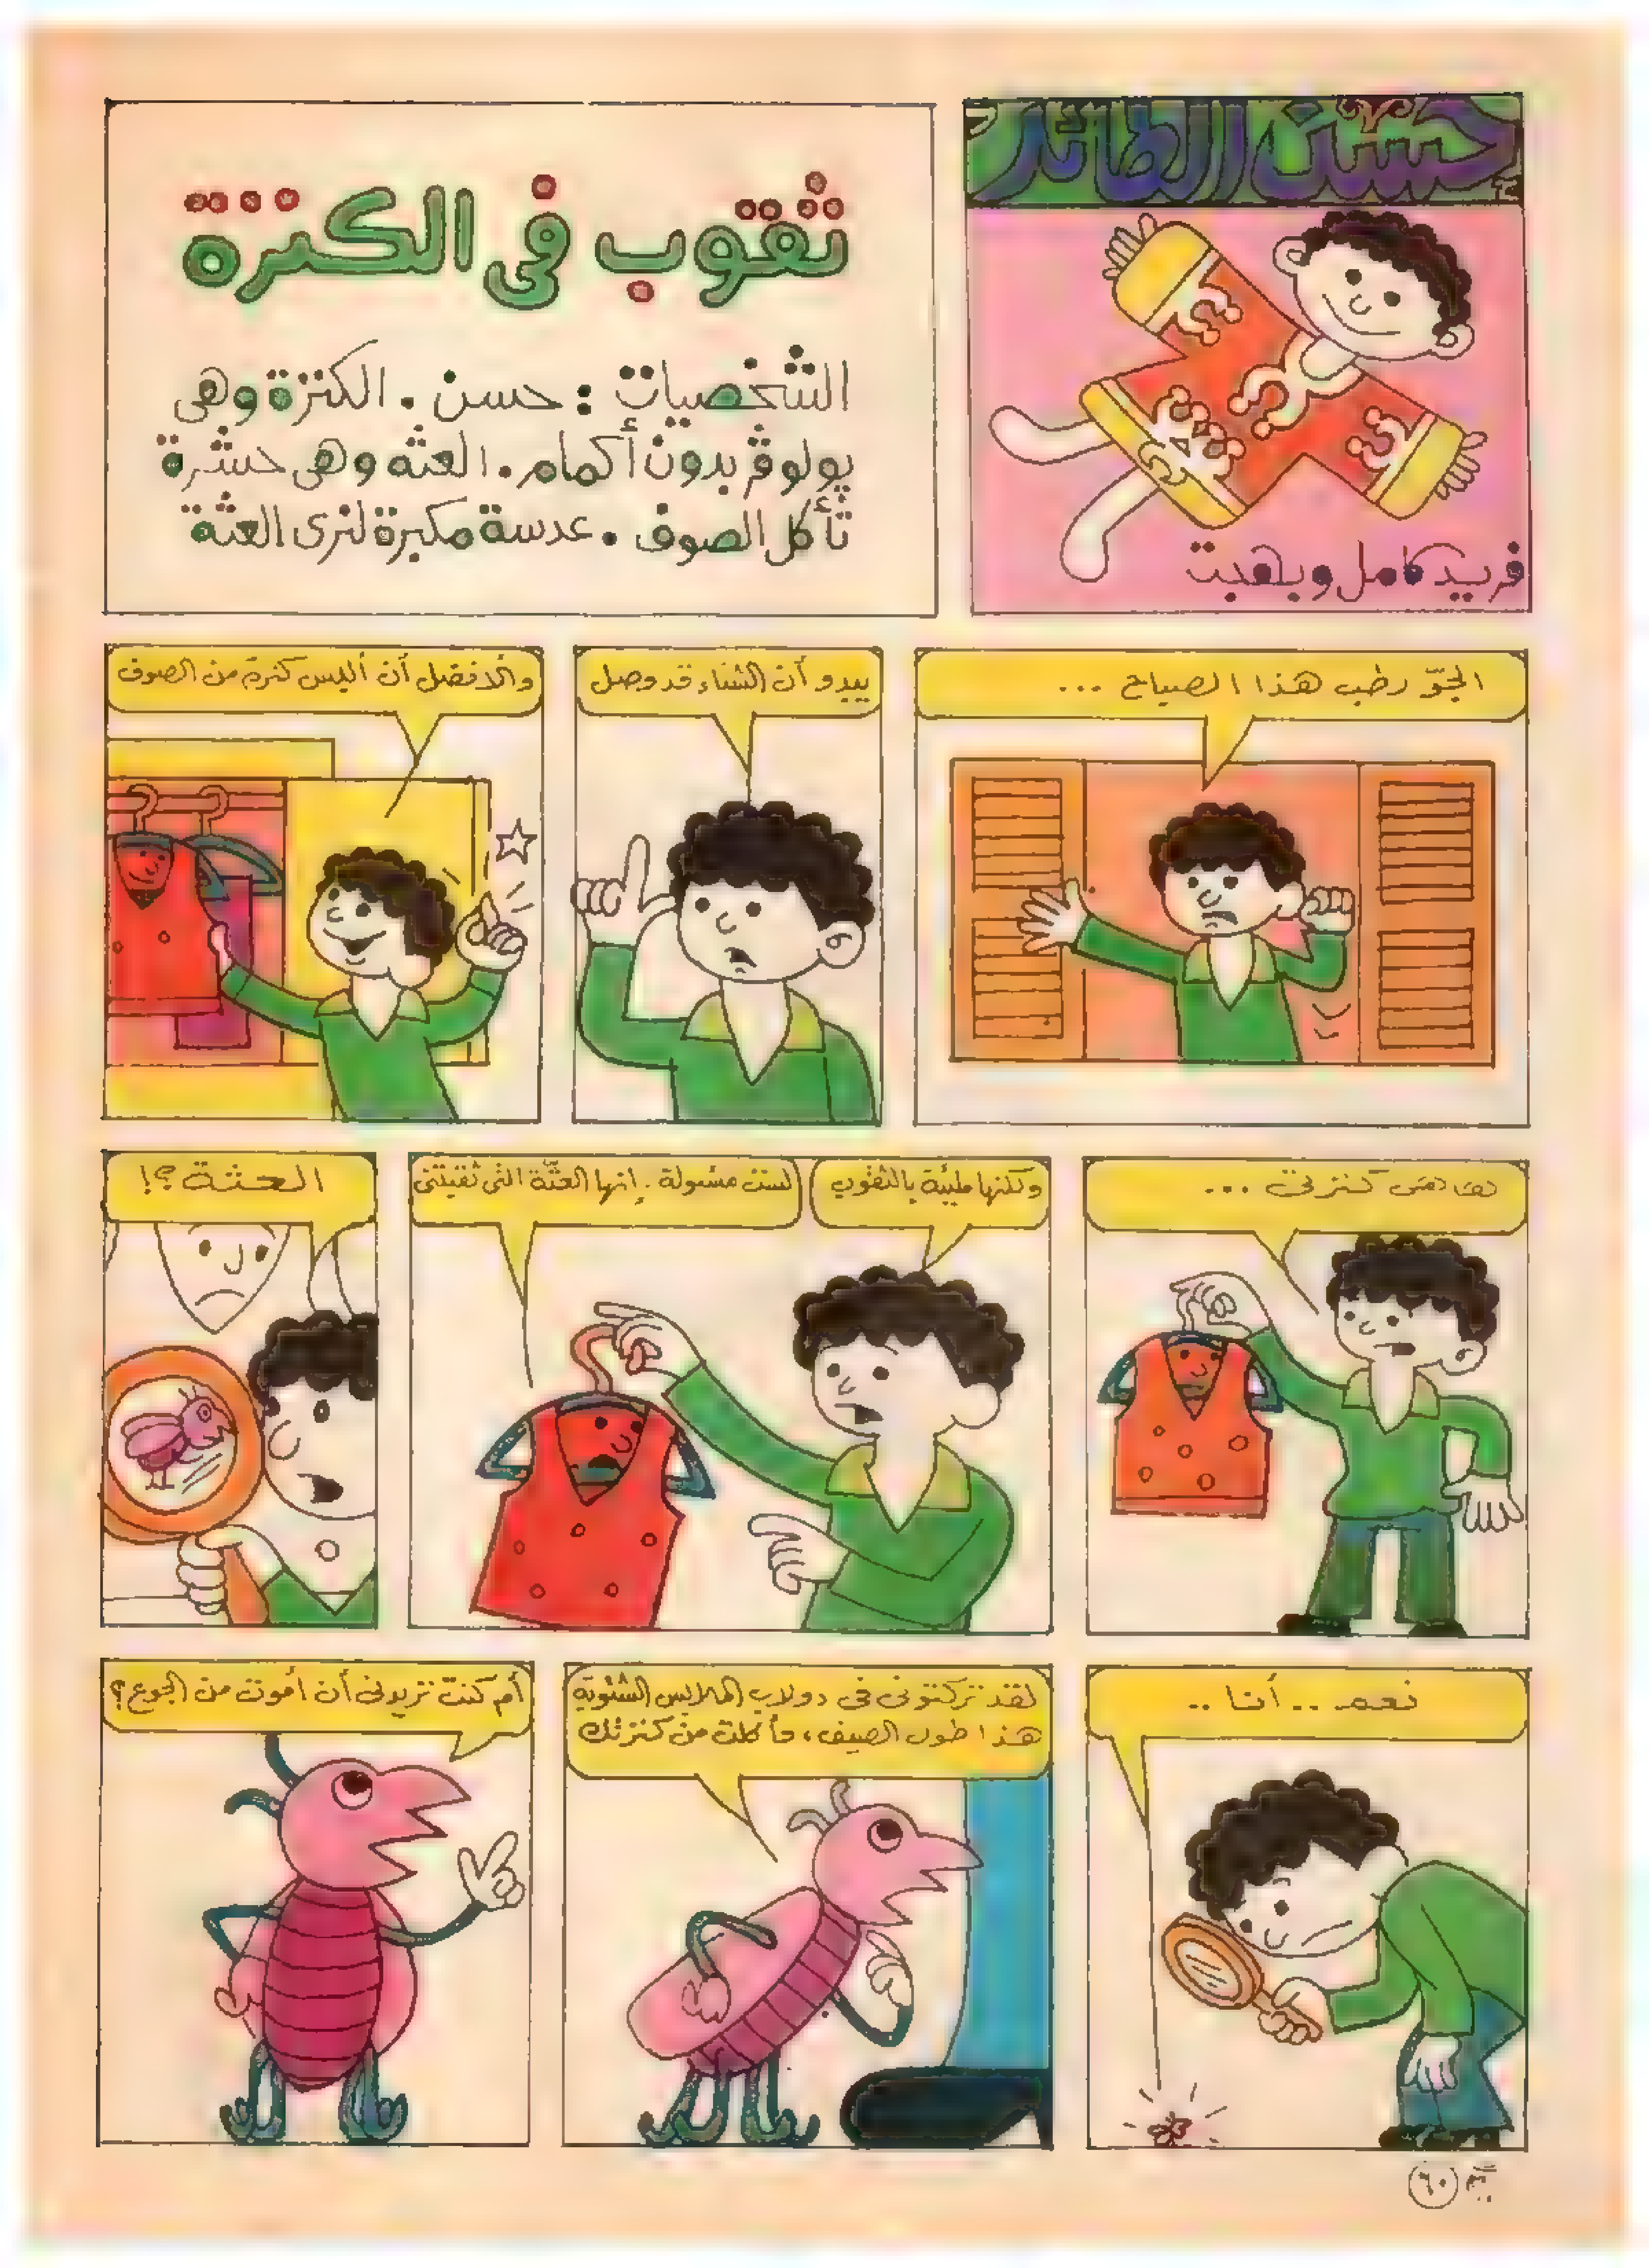 حسن الطائر
فريد كامل وبهجت
ثقوب فى الكنزة
الشخصيات : حسن . الكنزة وهى
بولوڤر بدون أكمام . العثه وهى حشرة
تأكل الصوف . عدسة مكبرة لنرى العثة
الجوّ رطب هذا الصباح ...
يبدو أن الشتاء قد وصل
والأفضل أن ألبس كنزة من الصوف
ها هى كنزتى ...
ولكنها مليئة بالثقوب
لست مسئولة . إنها العثّة التى ثقبتنى
العثة ؟!
نعم .. أنا ..
لقد تركتونى فى دولاب الملابس الشتوية
هذا طول الصيف ، فأكلت من كنزتك
أم كنت تريدنى أن أموت من الجوع ؟
٦٠